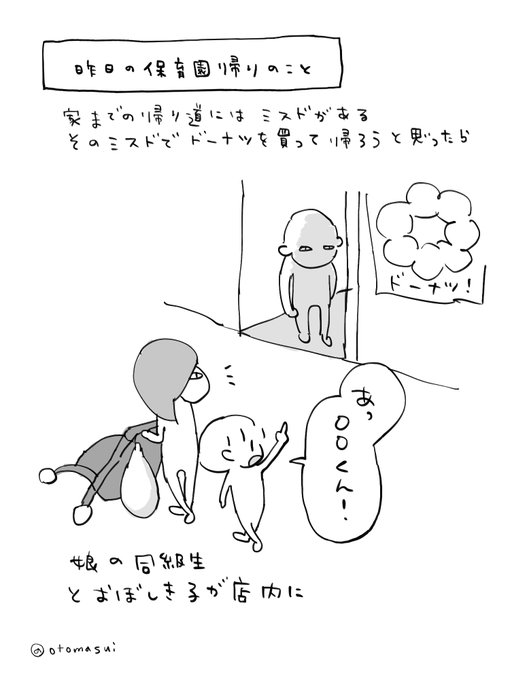 昨日の保育園帰りのこと
家までの帰り道には ミスドがある
そのミスドで ドーナツを買って 帰ろう と思ったら
ドーナツ!
あっ
○○くん!
娘の同級生
とおぼしき子が店内に
@otomasui